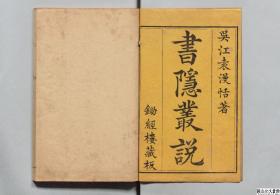 吳江袁漫恬著
書隱叢說
鋤經樓藏板